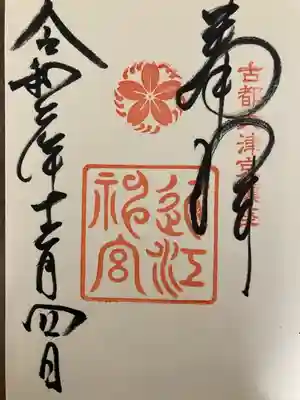 奉拝
古都大津京鎮座
近江
神宮
令和年十二月四日